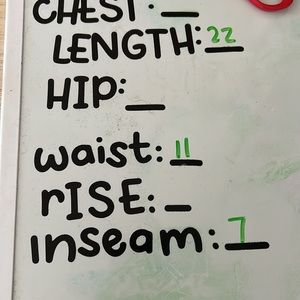 CHEST:
LENGTH: 22
HIP:
waist: 11
rISE:
Inseam: 7